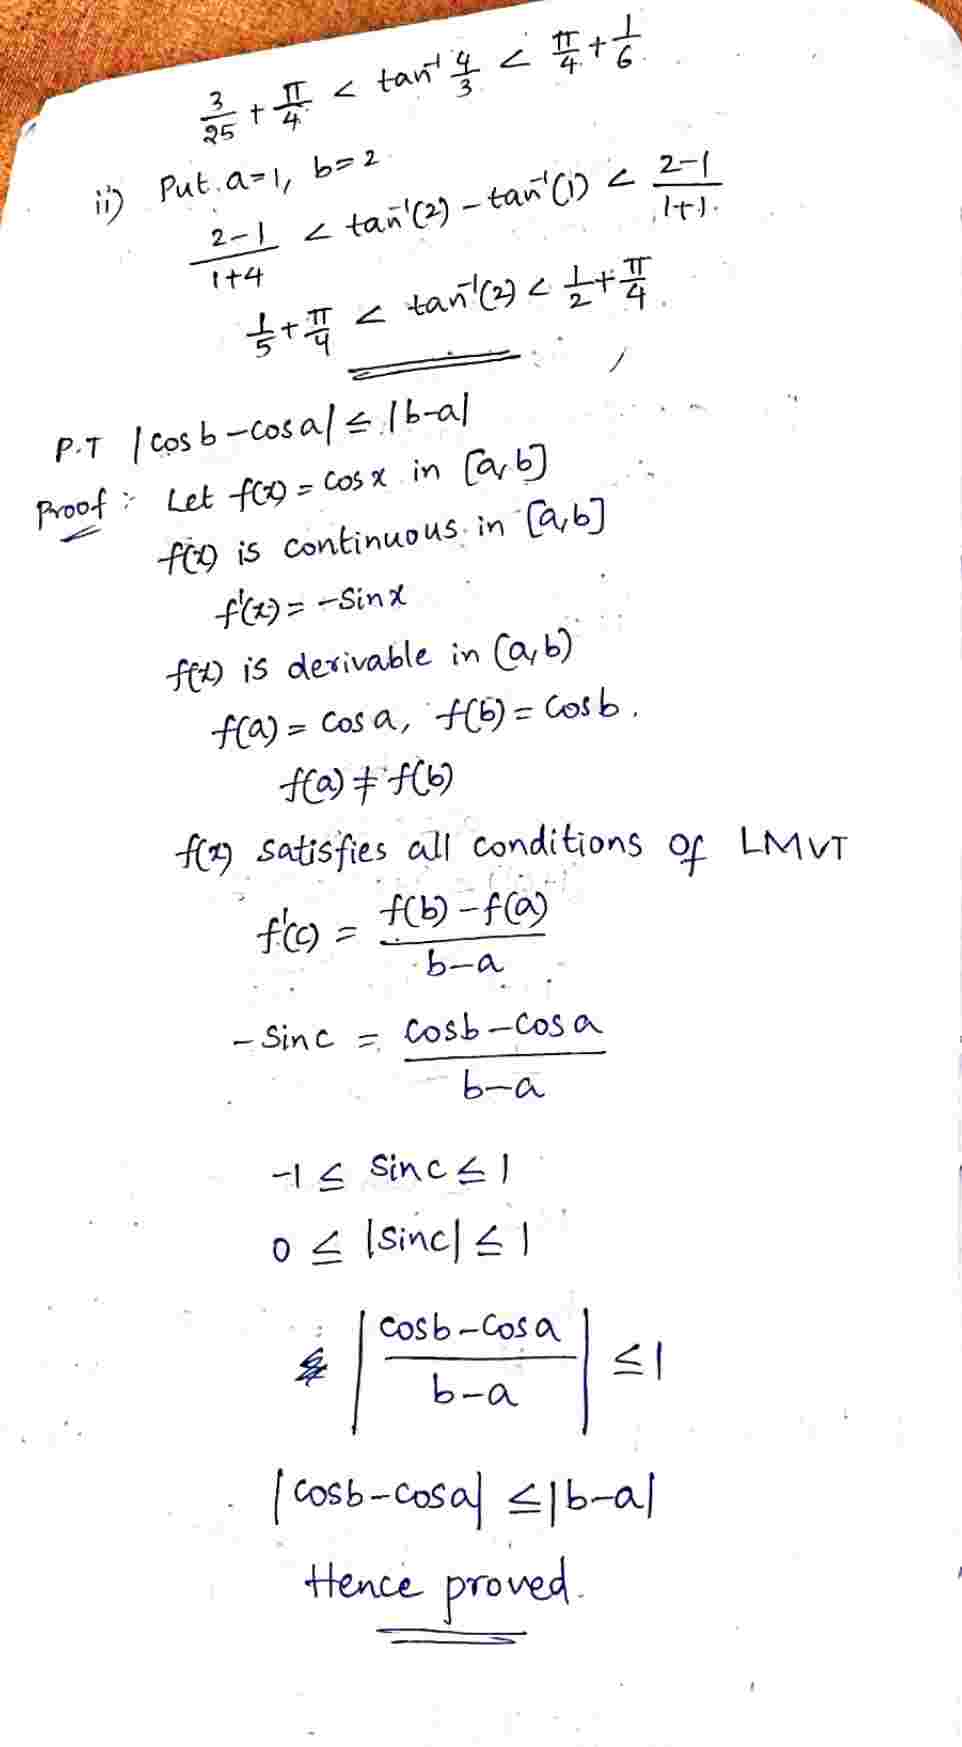 3/25 + π/4 < tan⁻¹ 4/3 < π/4 + 1/6
ii) Put a=1, b=2
(2-1)/(1+4) < tan⁻¹(2) - tan⁻¹(1) < (2-1)/(1+1)
1/5 + π/4 < tan⁻¹(2) < 1/2 + π/4
P.T |cos b - cos a| ≤ |b-a|
Proof :- Let f(x) = cos x in [a,b]
f(x) is continuous in [a,b]
f'(x) = -sin x
f(x) is derivable in (a,b)
f(a) = cos a, f(b) = cos b.
f(a) ≠ f(b)
f(x) satisfies all conditions of LMVT
f'(c) = (f(b) - f(a))/(b-a)
-sin c = (cosb - cos a)/(b-a)
-1 ≤ sin c ≤ 1
0 ≤ |sinc| ≤ 1
|(cosb - cos a)/(b-a)| ≤ 1
|cosb - cosa| ≤ |b-a|
Hence proved.